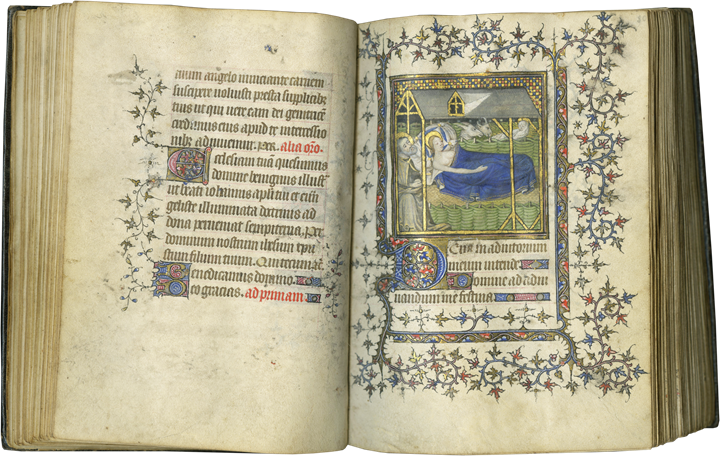 tuum angelo nunciante carnem
suscipere voluisti presta supplicib;
tuis ut qui vere eam dei genitricē
credimus eius apud te intercessio
nib; adiuvemur. Per. alia oro.
Ecclesiam tuā quesumus
domine benignus illustra
ut beati iohannis apl'i et euā
geliste illuminata doctrinis ad
dona perveniat sempiterna. Per
dominum nostrum ihesum xpri
stum filium tuum. Qui tecum.
Benedicamus domino.
Deo gracias. ad primam
Deus in adiutorium
meum intende
Domine ad adiu
uandum me festina